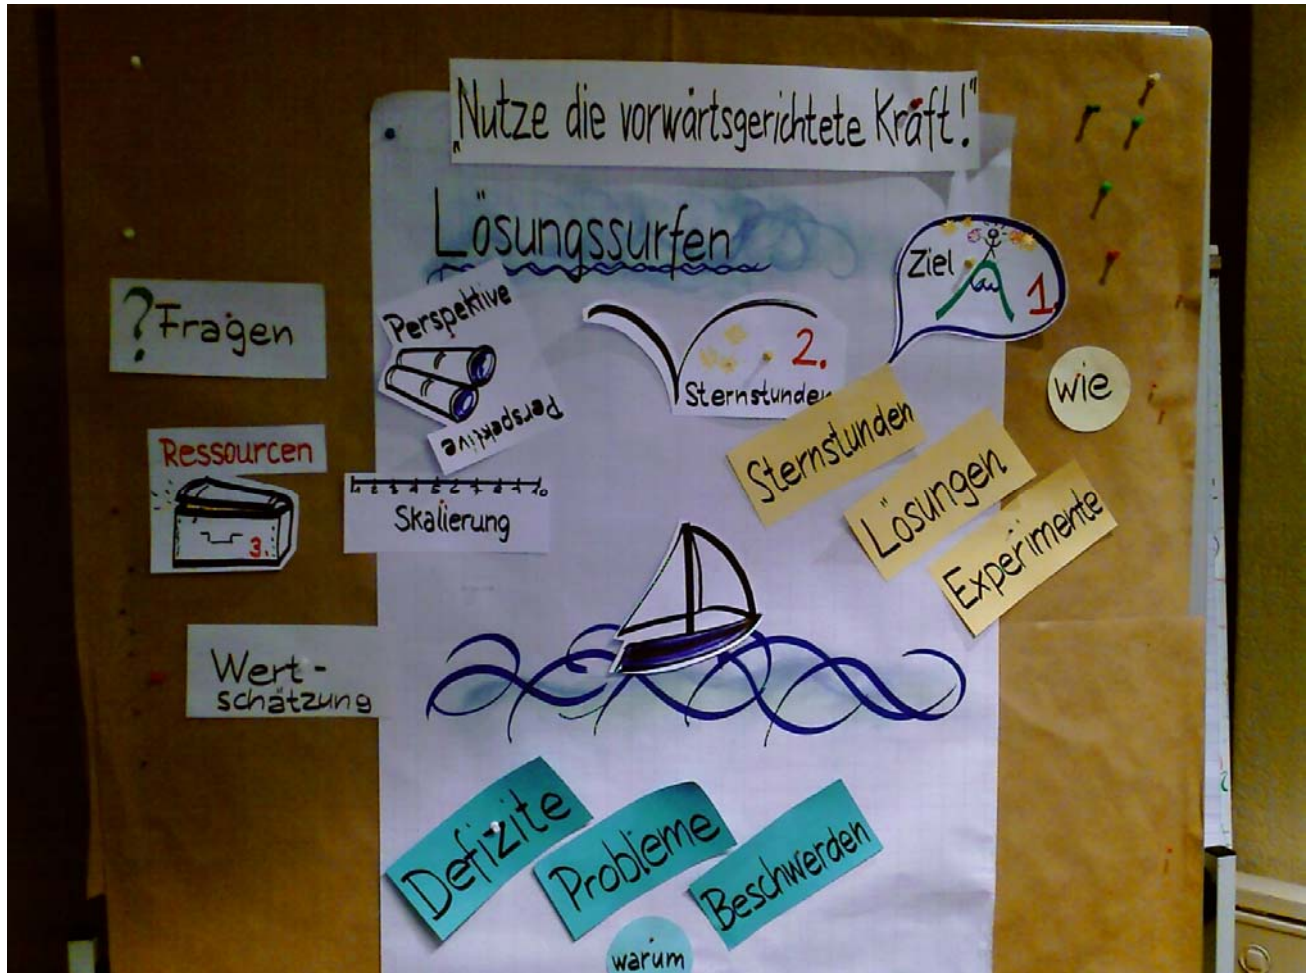 „Nutze die vorwärtsgerichtete Kraft!"
Lösungssurfen
Ziel
1.
? Fragen
Perspektive
Perspektive
2.
Sternstunden
wie
Ressourcen
3.
1 2 3 4 5 6 7 8 9 10
Skalierung
Sternstunden
Lösungen
Experimente
Wert-
schätzung
Defizite
Probleme
Beschwerden
warum